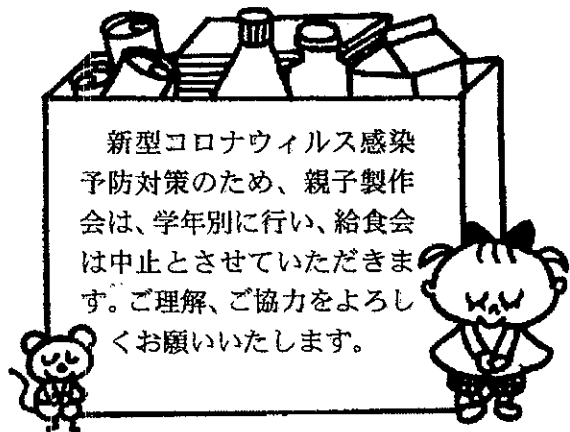 新型コロナウィルス感染
予防対策のため、親子製作
会は、学年別に行い、給食会
は中止とさせていただきま
す。ご理解、ご協力をよろし
くお願いいたします。